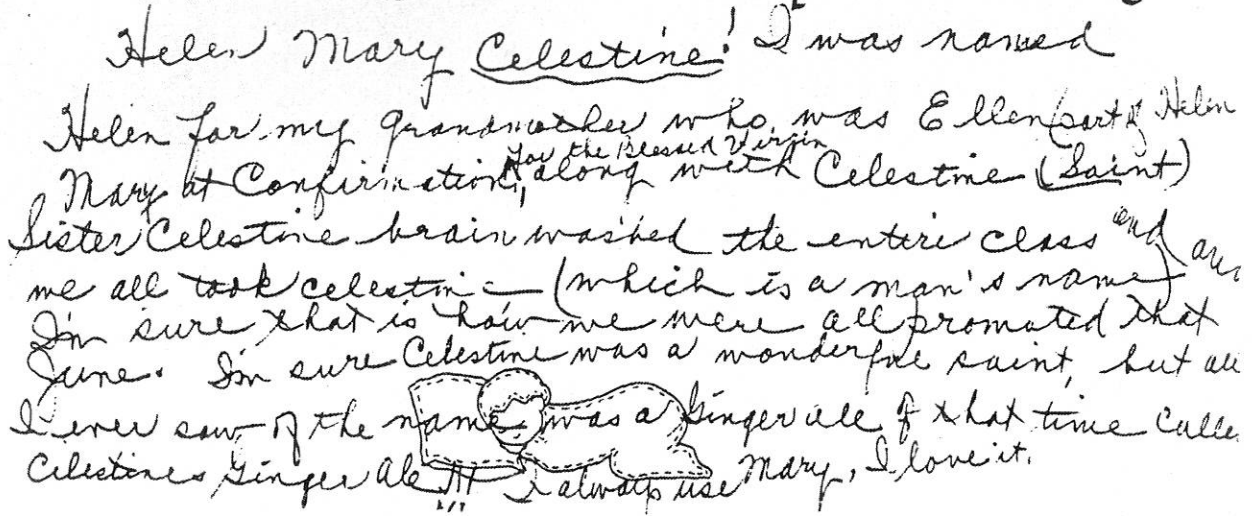 Helen Mary Celestine! I was named
Helen for my grandmother who was Ellen (part of Helen
for the Blessed Virgin
Mary at Confirmation, along with Celestine (Saint)
Sister Celestine brainwashed the entire class and
we all took celestine (which is a man's name)
I'm sure that is how we were all promoted that
June. I'm sure Celestine was a wonderful saint, but all
I ever saw of the name was a Ginger ale of that time calle
Celestines Ginger Ale!!! I always use Mary, I love it.